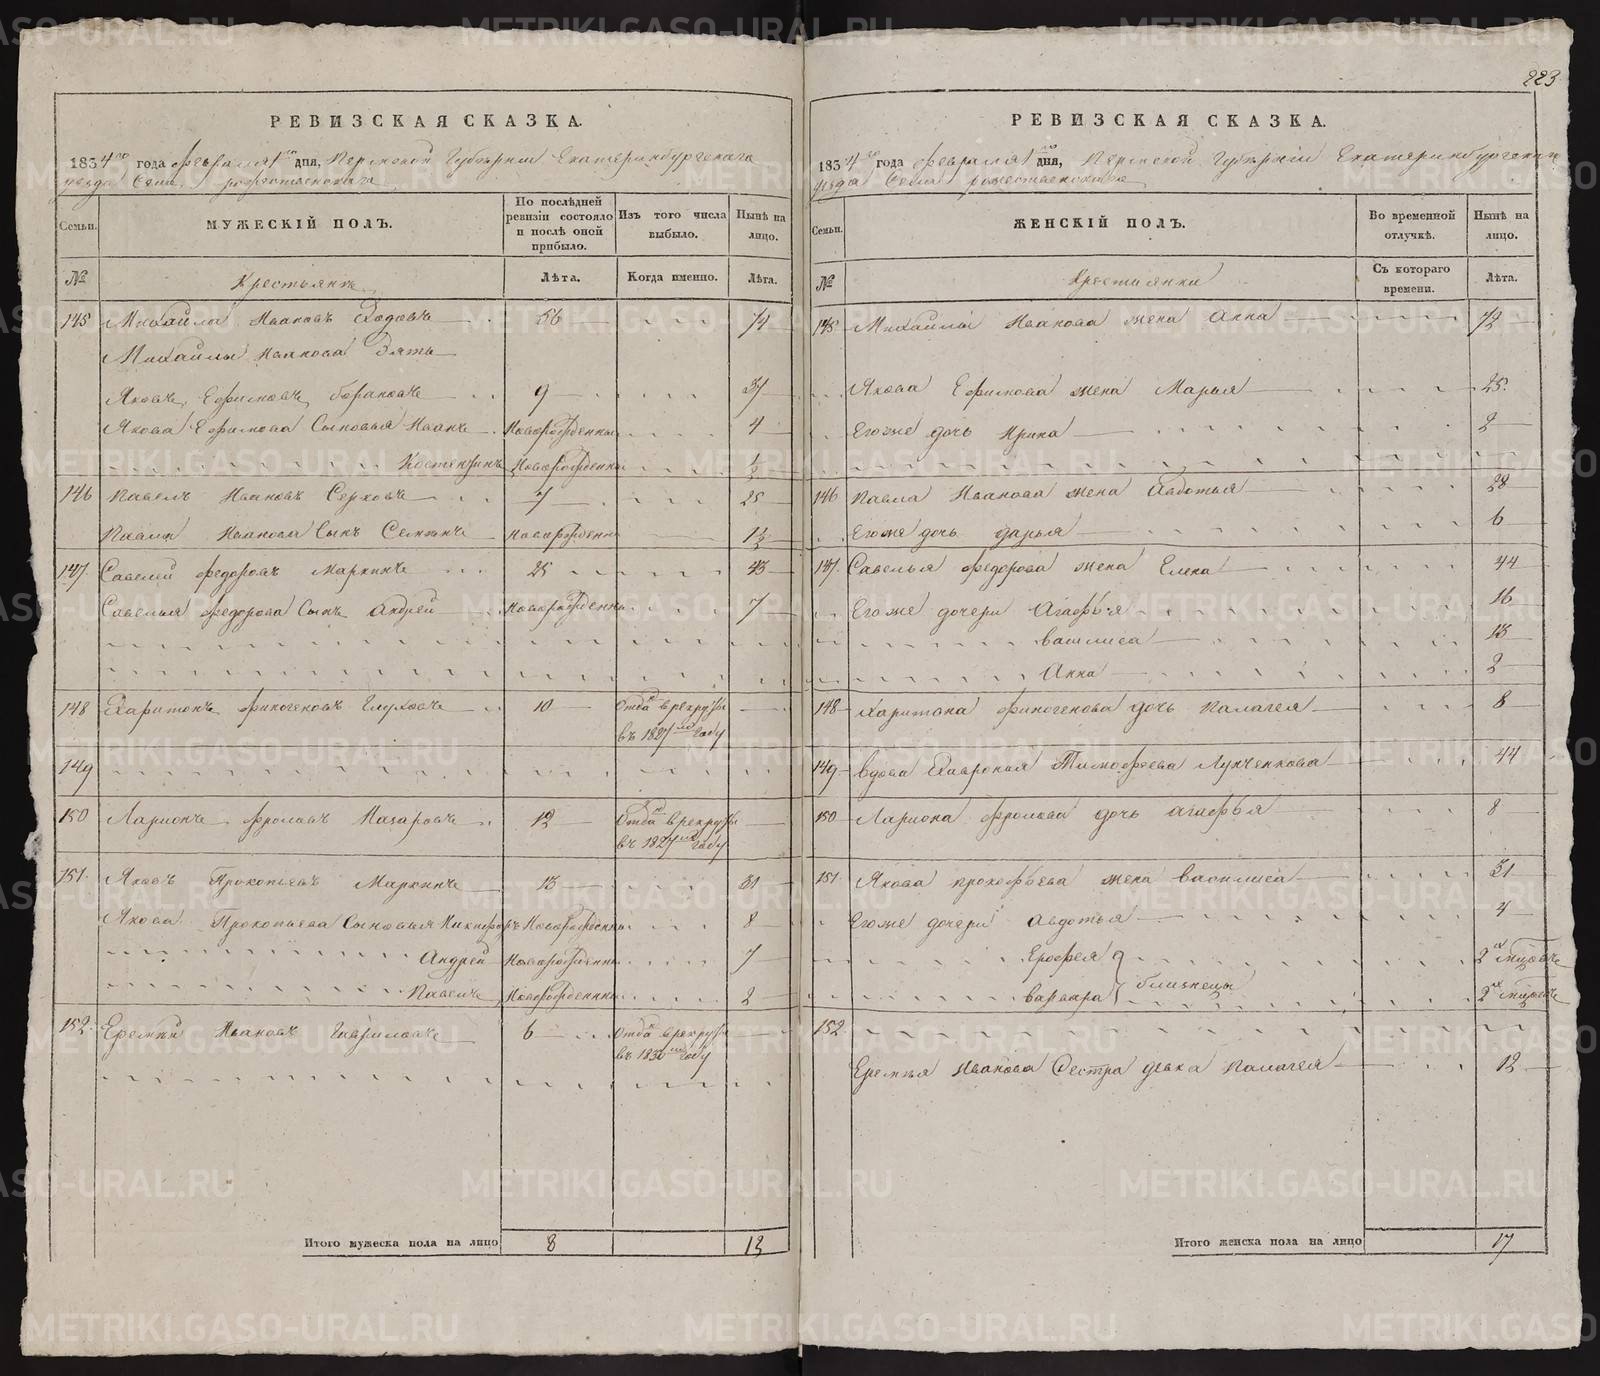 223
РЕВИЗСКАЯ СКАЗКА.
1834 го года февраля 1 го дня, Пермской Губернiи Екатеринбургскаго
уезда Села рожественскаго
Семьи.
МУЖЕСКIЙ ПОЛЪ.
По послѣдней ревизiи состояло и послѣ оной прибыло.
Изъ того числа выбыло.
Нынѣ на лицо.
№
Крестьянъ
Лѣта.
Когда именно.
Лѣта.
145 Михайла Ивановъ 56 74
Михайлы Иванова Зять
Яковъ Ефимовъ 9
Якова Ефимова Сыновья Иванъ Новорожденны 4
Костентинъ Новорожденны 1/2
146 Павелъ Ивановъ 7 25
Павла Иванова Сынъ Семенъ Новорожденны 1 1/2
147 Савелей федоровъ Маркинъ 25 43
Савелья федорова Сынъ Андрей Новорожденны 7
148 Харитонъ финогеновъ Глуховъ 10 Отданъ в рекруты
въ 1827 мъ году
149
150 Ларионъ фроловъ Назаровъ 12 Отданъ в рекруты
въ 1827 мъ году
151 Яковъ Прокопьевъ Маркинъ 13 31
Якова Прокопьева Сыновья Никифоръ Новорожденны 8
Андрей Новорожденны 7
Павелъ Новорожденны 2
152 Еремѣй Ивановъ Гавриловъ 6 Отданъ в рекруты
въ 1830 мъ году
Итого мужеска пола на лицо 8 13
РЕВИЗСКАЯ СКАЗКА.
1834 го года февраля 1 го дня, Пермской Губернiи Екатеринбургскаго
уезда Села рожественскаго
Семьи.
ЖЕНСКIЙ ПОЛЪ.
Во временной отлучкѣ.
Нынѣ на лицо.
№
Крестьянки
Съ котораго времени.
Лѣта.
145 Михайлы Иванова жена Анна 72
Якова Ефимова жена Марья 25
Егоже дочь Ирина 2
146 Павла Иванова жена Авдотья 28
Егоже дочь дарья 6
147 Савелья федорова жена Елена 44
Егоже дочери Агафья 16
василиса 13
Анна 2
148 Харитона финогенова дочь Палагея 8
149 вдова Хаврония Тимофеева 44
150 Лариона фролова дочь агафья 8
151 Якова прокофьева жена василиса 31
Егоже дочери Авдотья 4
2 хъ
варвара близнецы 2 хъ
152
Еремѣя Иванова Сестра девка Палагея 12
Итого женска пола на лицо 17
METRIKI.GASO-URAL.RU